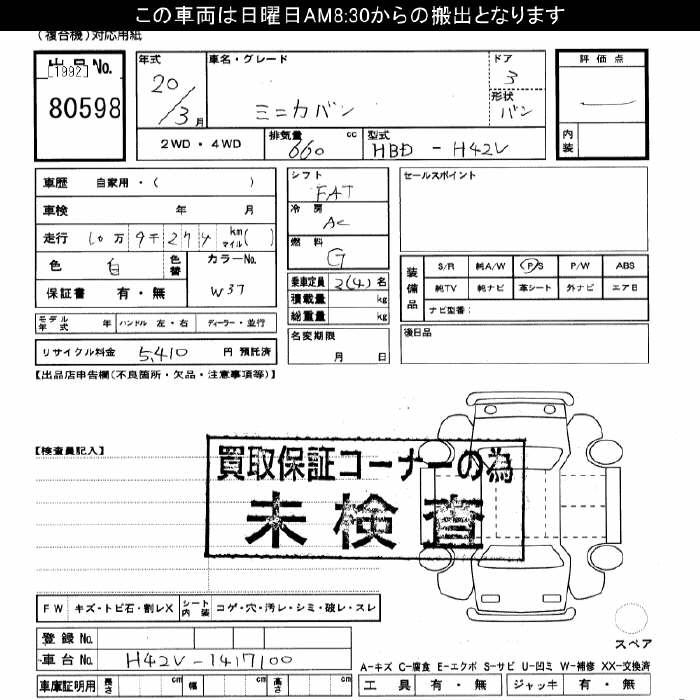 この車両は日曜日AM8:30からの搬出となります
(複合機)対応用紙
出品No. [1992] 80598
年式 20/3月
車名・グレード ミニカバン
ドア 3
形状 バン
評価点
内装
2WD・4WD
排気量 660 cc
型式 HBD - H42V
車歴 自家用・( )
車検 年 月
走行 10万9千274 km マイル( )
色 白 色替
カラーNo. W37
保証書 有・無
シフト FAT
冷房 AC
燃料 G
乗車定員 2(4)名
積載量 kg
総重量 kg
名変期限 月 日
セールスポイント
装備品 S/R 純A/W P/S P/W ABS
純TV 純ナビ 革シート 外ナビ エアB
ナビ型番:
後日品
モデル年式 年 ハンドル 左・右 ディーラー・並行
リサイクル料金 5,410 円 預託済
【出品店申告欄(不良箇所・欠品・注意事項等)】
【検査員記入】
買取保証コーナーの為
未検査
FW キズ・トビ石・割レX シート内装 コゲ・穴・汚レ・シミ・破レ・スレ
登録No.
車台No. H42V-1417100
車庫証明用 長さ cm 幅 cm 高さ cm
スペア
A-キズ C-腐食 E-エクボ S-サビ U-凹ミ W-補修 XX-交換済
工具 有・無 ジャッキ 有・無